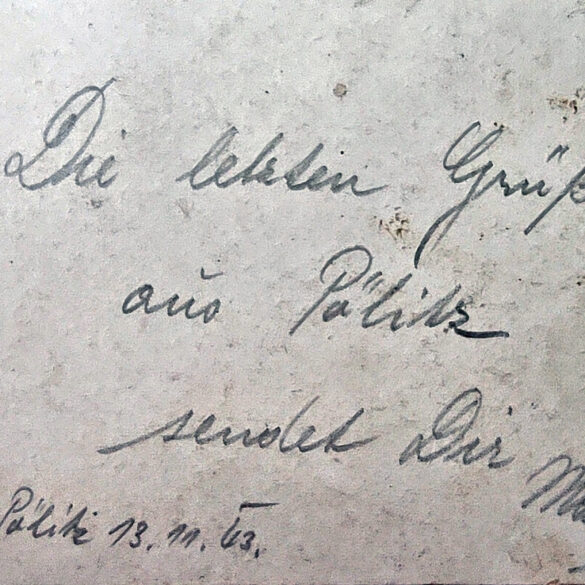 Die letzten Grüß
aus Pölitz
sendet Dir
Pölitz 13.11.43.